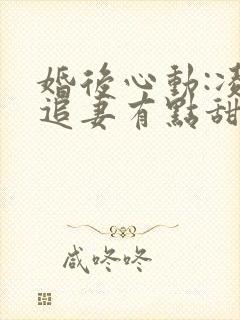 婚後心動:凌
追妻有點甜
咸咚咚